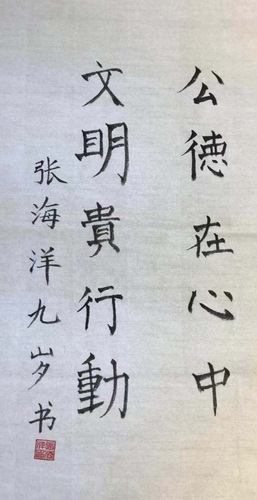 公德在心中
文明貴行動
张海洋九岁书